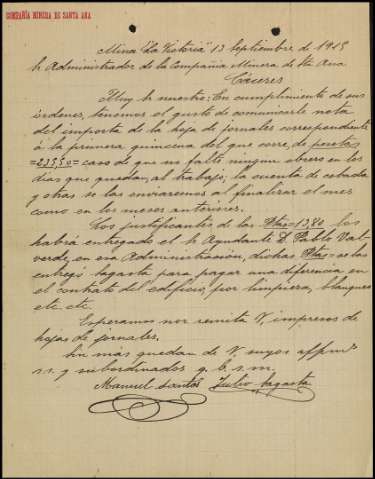 COMPAÑÍA MINERA DE SANTA ANA
Mina "La Victoria" 13 Septiembre de 1915
Sr Administrador de la Compañia Minera de Sta Ana
Cáceres
Muy Sr nuestro: En cumplimiento de sus
órdenes, tenemos el gusto de comunicarle nota
del importe de la hoja de jornales correspondiente
à la primera quincena del que corre, de pesetas
caso de que no falte ningun obrero en los
dias que quedan, al trabajo; la cuenta de cebada
y otras se las enviaremos al finalizar el mes
como en los meses anteriores.
Los justificantes de las Ptas=13,80 los
habrá entregado el Sr Ayudante D. Pablo Val-
verde, en esa Administración, dichas, Ptas= se las
entregó Sagasta para pagar una diferencia en
el contrato del edificio, por limpieza, blanqueo
etc. etc.
Esperamos nos remita V, impresos de
hojas de jornales.
Sin más quedan de V. suyos affmos
s.s. y subordinados q. b. s. m.
Manuel Santos Julio Sagasta